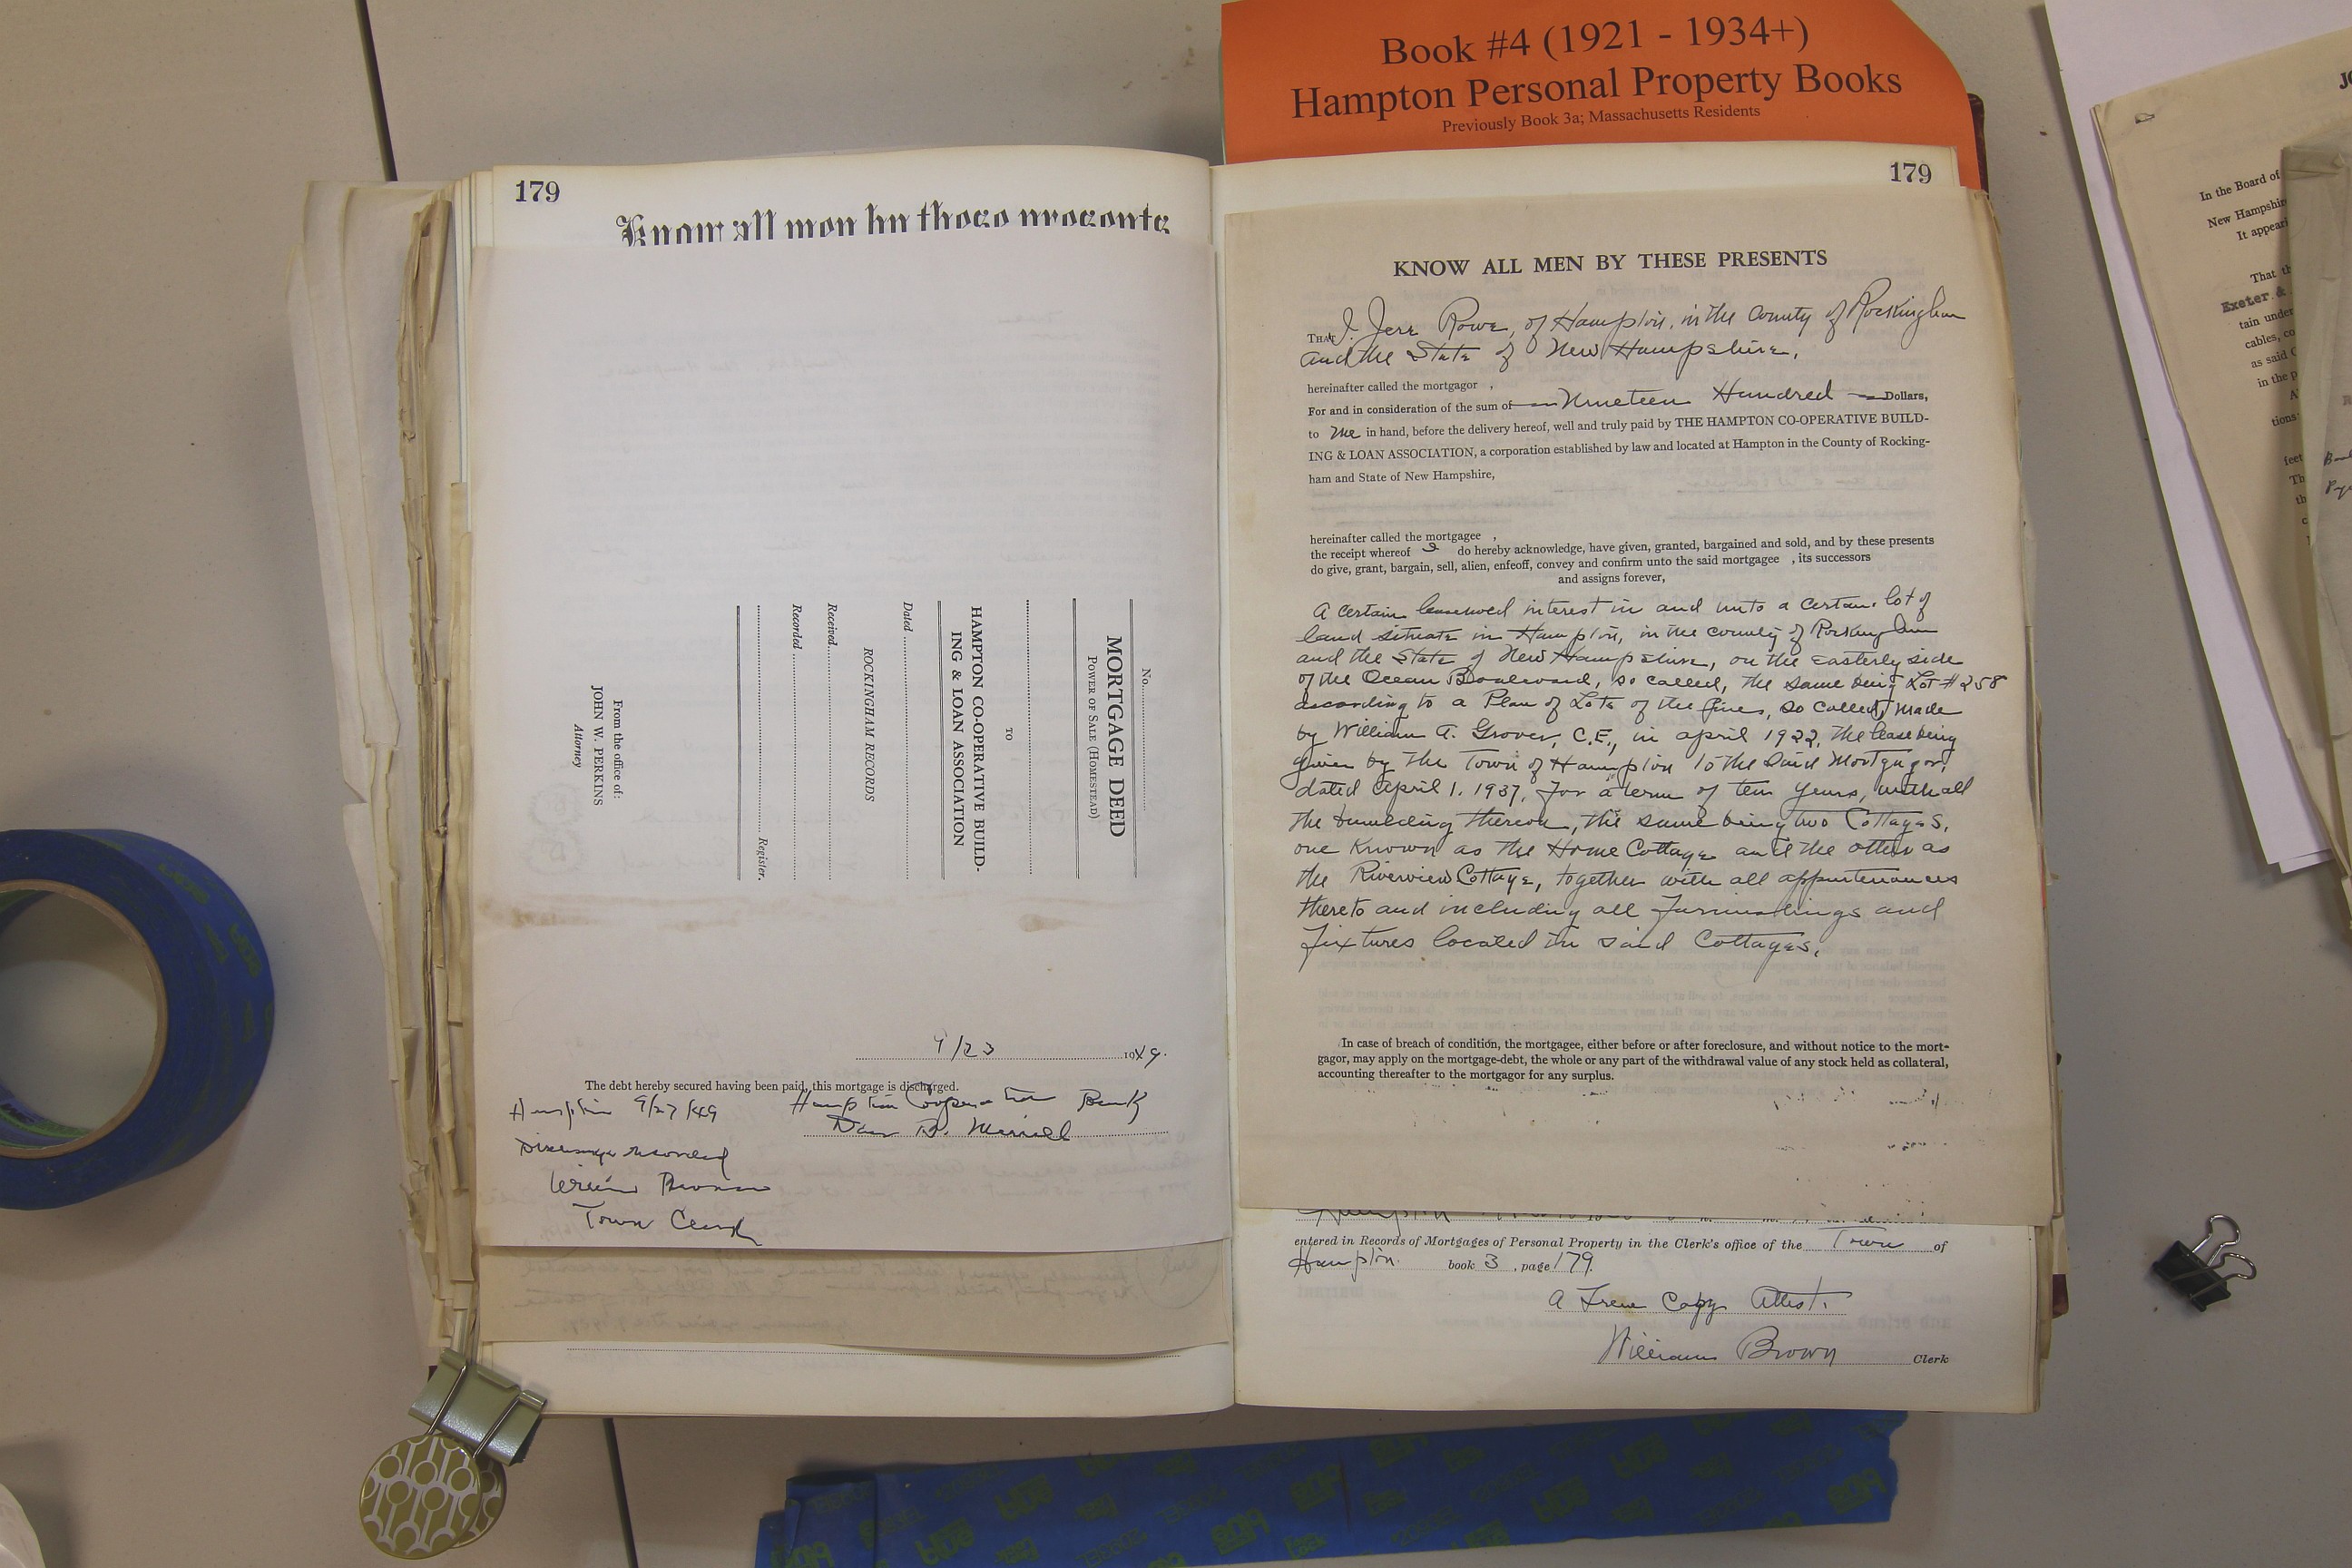 Book #4 (1921 - 1934+)
Hampton Personal Property Books
Previously Book 3a; Massachusetts Residents
179
Know all men by these presents
No.
MORTGAGE DEED
POWER OF SALE (HOMESTEAD)
TO
HAMPTON CO-OPERATIVE BUILD-
ING & LOAN ASSOCIATION
Dated
ROCKINGHAM RECORDS
Received
Recorded
Register.
From the office of:
JOHN W. PERKINS
Attorney
9/23 1949.
The debt hereby secured having been paid, this mortgage is discharged.
Hampton 9/27/49
Hampton Cooperative Bank
Dean B. Merrill
Discharge recorded
William Brown
Town Clerk
179
KNOW ALL MEN BY THESE PRESENTS
THAT I, Jere Rowe, of Hampton, in the County of Rockingham
and the State of New Hampshire,
hereinafter called the mortgagor ,
For and in consideration of the sum of Nineteen Hundred Dollars,
to me in hand, before the delivery hereof, well and truly paid by THE HAMPTON CO-OPERATIVE BUILD-
ING & LOAN ASSOCIATION, a corporation established by law and located at Hampton in the County of Rocking-
ham and State of New Hampshire,
hereinafter called the mortgagee ,
the receipt whereof I do hereby acknowledge, have given, granted, bargained and sold, and by these presents
do give, grant, bargain, sell, alien, enfeoff, convey and confirm unto the said mortgagee , its successors
and assigns forever,
A certain leasehold interest in and unto a certain lot of
land situate in Hampton, in the county of Rockingham
and the State of New Hampshire, on the easterly side
of the Ocean Boulevard, so called, the same being Lot #258
according to a Plan of Lots of the Pines, so called, made
by William A. Grover, C.E., in april 1922, the lease being
given by the Town of Hampton to the said Mortgagor,
dated April 1, 1937, for a term of ten years, with all
the building thereon, the same being two Cottages,
one known as the Home Cottage and the other as
the Riverview Cottage, together with all appurtenances
thereto and including all furnishings and
fixtures located in said Cottages.
In case of breach of condition, the mortgagee, either before or after foreclosure, and without notice to the mort-
gagor, may apply on the mortgage-debt, the whole or any part of the withdrawal value of any stock held as collateral,
accounting thereafter to the mortgagor for any surplus.
entered in Records of Mortgages of Personal Property in the Clerk's office of the Town of
Hampton. book 3 , page 179.
A True Copy Attest:
William Brown Clerk
In the Board of
New Hampshire
It appear
That th
Exeter &
tain under
cables, co
as said C
in the p
tions
feet